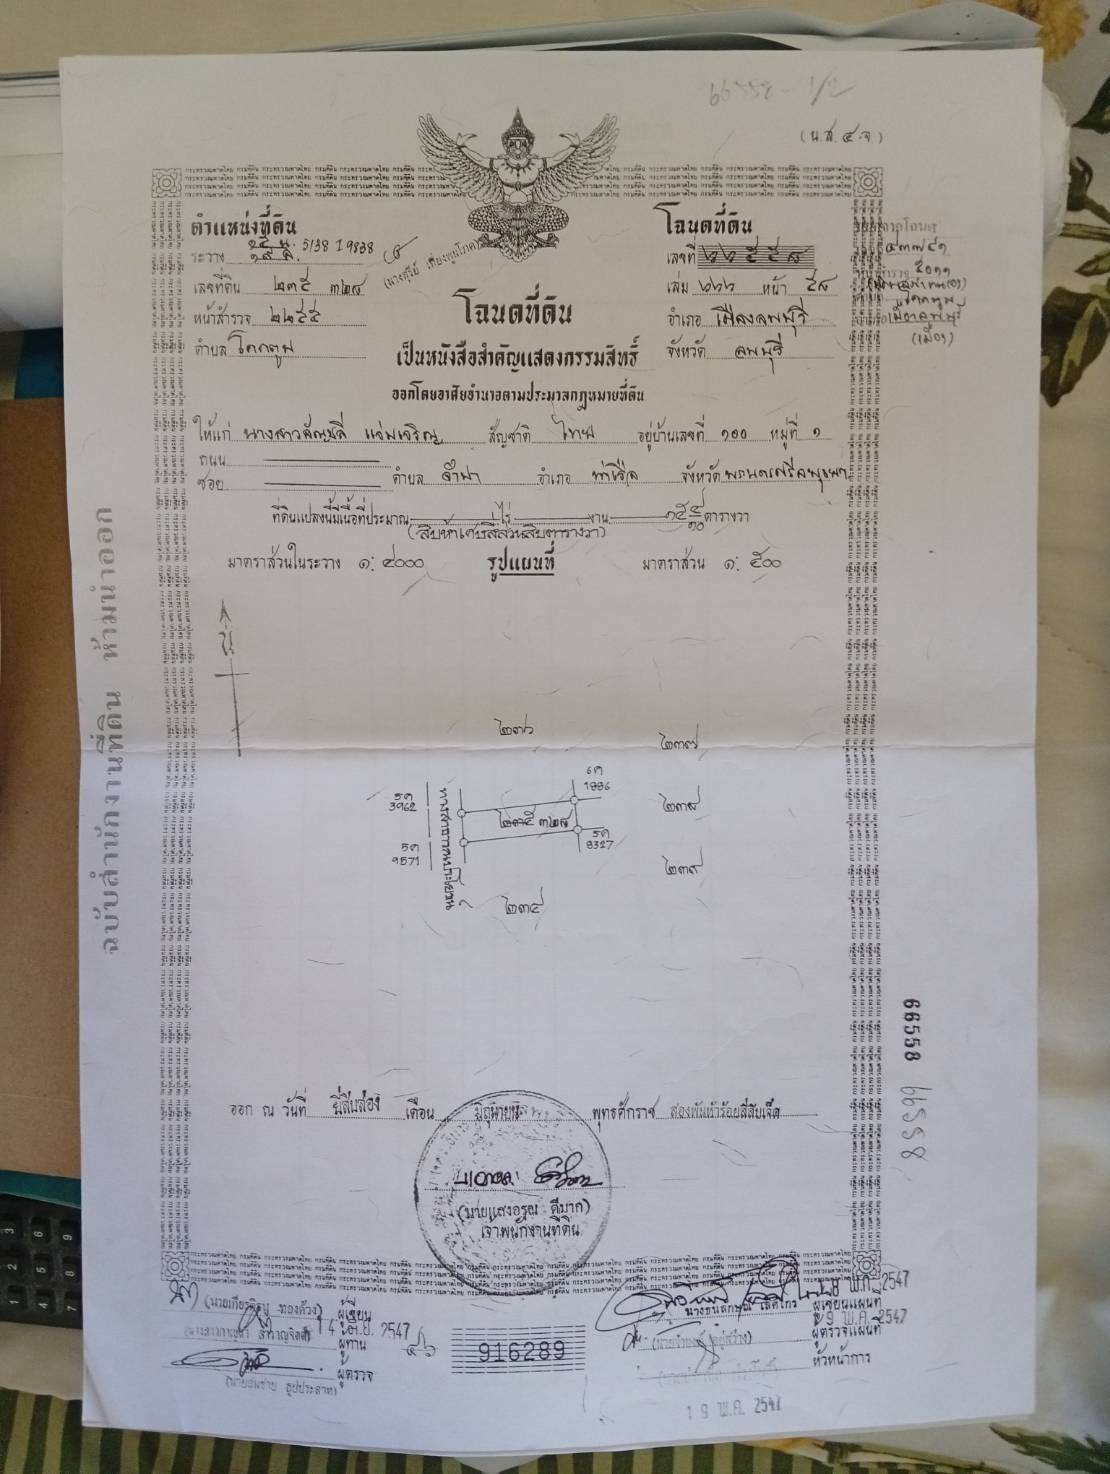 66558 - 1/2
(น.ส. ๔ จ)
ตำแหน่งที่ดิน
ระวาง 5138 I 9838
เลขที่ดิน ๒๓๕ ๓๒๘
หน้าสำรวจ ๒๒๕๕
ตำบล โคกตูม
โฉนดที่ดิน
เลขที่
เล่ม ๖๖๖ หน้า ๕๘
อำเภอ เมืองลพบุรี
จังหวัด ลพบุรี
โคกตูม
เมืองลพบุรี
(เมือง)
โฉนดที่ดิน
เป็นหนังสือสำคัญแสดงกรรมสิทธิ์
ออกโดยอาศัยอำนาจตามประมวลกฎหมายที่ดิน
ให้แก่ นางสาว แจ่มเจริญ สัญชาติ ไทย อยู่บ้านเลขที่ ๑๐๐ หมู่ที่ ๑
ถนน
ซอย ตำบล จำปา อำเภอ ท่าเรือ จังหวัด พระนครศรีอยุธยา
ที่ดินแปลงนี้มีเนื้อที่ประมาณ ไร่ งาน ๑๕ ๔/๑๐ ตารางวา
(สิบห้าเศษสี่ส่วนสิบตารางวา)
มาตราส่วนในระวาง ๑: ๔๐๐๐ รูปแผนที่ มาตราส่วน ๑: ๕๐๐
น
๒๓๖
๒๓๗
1886
5ค
3962
๒๓๕ ๓๒๘
๒๓๘
5ค
8327
5ค
9571
ทางสาธารณประโยชน์
๒๓๙
๒๓๔
ฉบับสำนักงานที่ดิน ห้ามนำออก
66558
66558
ออก ณ วันที่ ยี่สิบสอง เดือน มิถุนายน พุทธศักราช สองพันห้าร้อยสี่สิบเจ็ด
(นายแสงอรุณ ดีมาก)
เจ้าพนักงานที่ดิน
ทองด้วง) ผู้เขียน
ผู้ทาน
ผู้ตรวจ
2547
916289
ผู้เขียนแผนที่
ผู้ตรวจแผนที่
หัวหน้าการ
พ.ค. 2547
19 พ.ค. 2547